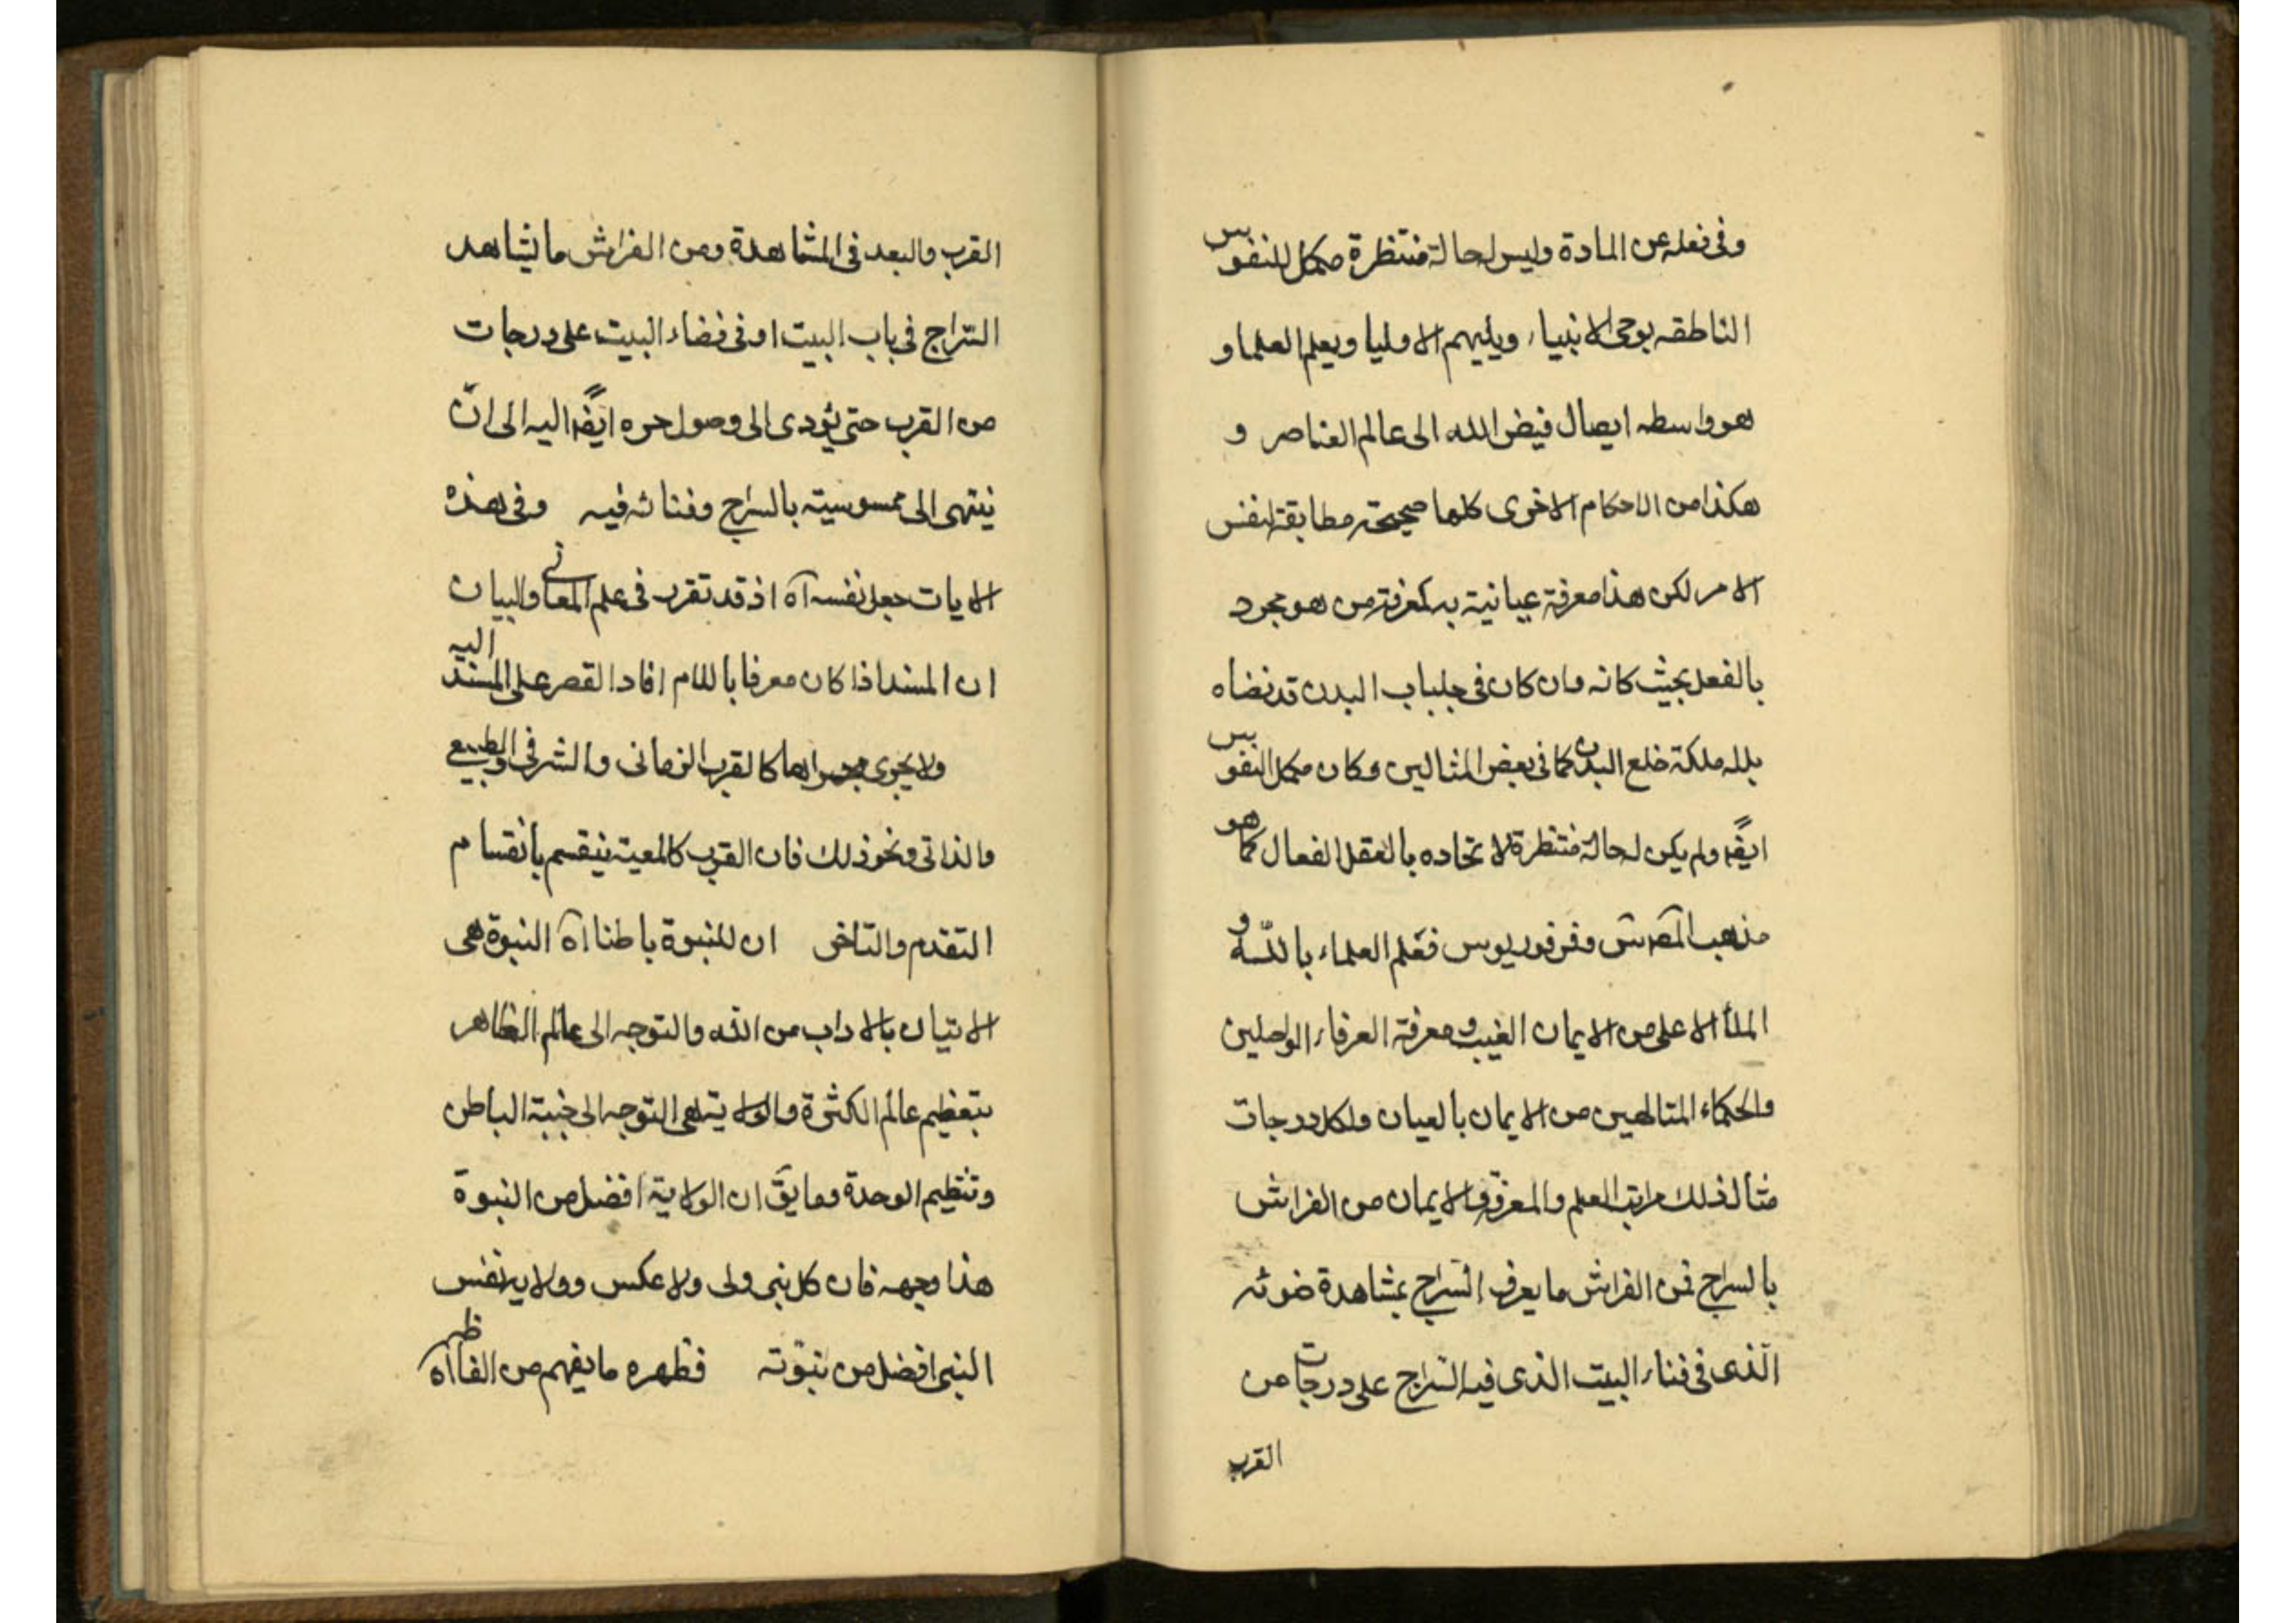 وفى فعله عن المادة وليس له حالة منتظرة مكمل للنفوس
الناطقه يوحى الانبياء ويلهم الاوليا ويعلم العلما و
هو واسطه ايصال فيض الله الى عالم العناصر و
هكذا من الاحكام الاخرى كلها صحيحة مطابقة لنفس
الامر لكن هذا معرفة عيانية به كمعرفة من هو مجرد
بالفعل بحيث كانه وان كان فى جلباب البدن قد نضاه
بل له ملكة خلع البدن كما فى بعض المتالهين وكان مكمل النفوس
ايضا ولم يكن له حالة منتظرة لاتحاده بالعقل الفعال كما هو
مذهب وفرفوريوس فعلم العلماء بالله و
الملأ الاعلى من الايمان الغيب ومعرفة العرفاء الواصلين
والحكماء المتالهين من الايمان بالعيان ولكل درجات
مثال ذلك مراتب العلم والمعرفة والايمان من الفراش
بالسراج فمن الفراش ما يعرف السراج بمشاهدة ضوئه
الذى فى فناء البيت الذى فيه السراج على درجات من
القرب
القرب والبعد فى المشاهدة ومن الفراش ما يشاهد
السراج فى باب البيت او فى فضاء البيت على درجات
من القرب حتى يؤدى الى وصول حره ايضا اليه الى ان
ينتهى الى ممسوسيته بالسراج وفنائه فيه وفى هذه
الايات جعل نفسه آه اذ قد تقرر فى علم المعانى والبيان
ان المسند اذا كان معرفا باللام افاد القصر على المسند اليه
ولا يجرى مجراها كالقرب الزمانى والشرفى والطبيعى
والذاتى ونحو ذلك فان القرب كالمعية ينقسم بانقسام
التقدم والتاخر ان للنبوة باطنا آه النبوة هى
الاتيان بالاداب من الله والتوجه الى عالم الظاهر
بتعظيم عالم الكثرة والولاية هى التوجه الى جنبة الباطن
وتنظيم الوحدة وما يق ان الولاية افضل من النبوة
هذا وجهه فان كل نبى ولى ولا عكس وولاية نفس
النبى افضل من نبوته فظهره ما يفهم من الفاظه آه